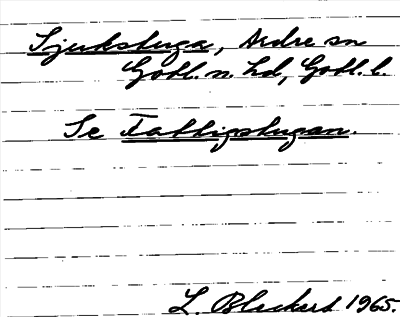 Sjukstuga, Ardre sn
Gotl. n. hd, Gotl. l.
Se Fattigstugan.
L. Blackert 1965.